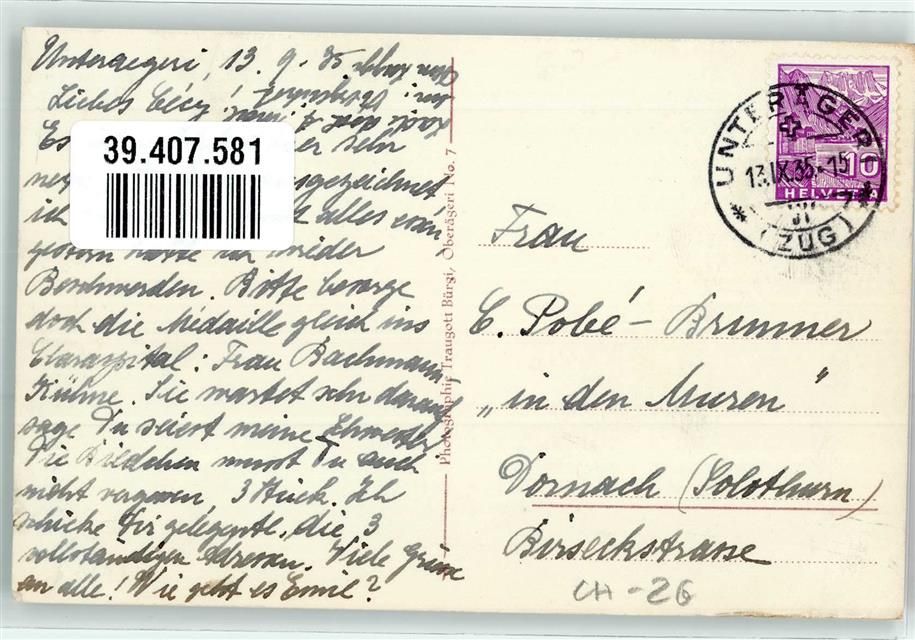 Unteraegeri, 13. 9. 35
Liebes Cécy!
Es er sehr
ausgezeichnet
ich alles
gestern hatte ich wieder
Beschwerden. Bitte besorge
doch die Médaille gleich ins
Claraspital: Frau Bachmann
Kühne. Sie wartet sehr darauf
sage Du seiest meine Schwester
Die Bildchen musst Du auch
nicht vergessen, 3 Stück. Ich
schicke Dir gelegentl. die 3
vollständigen Adressen. Viele Grüsse
an alle! Wie geht es Emil?
39.407.581
Photographie Traugott Bürgi, Oberägeri No. 7
UNTERÄGERI
13.IX.35.-15
(ZUG)
10
HELVETIA
Frau
C. Pobé - Brunner
„in den Muren"
Dornach (Solothurn)
Birseckstrasse
CH-26